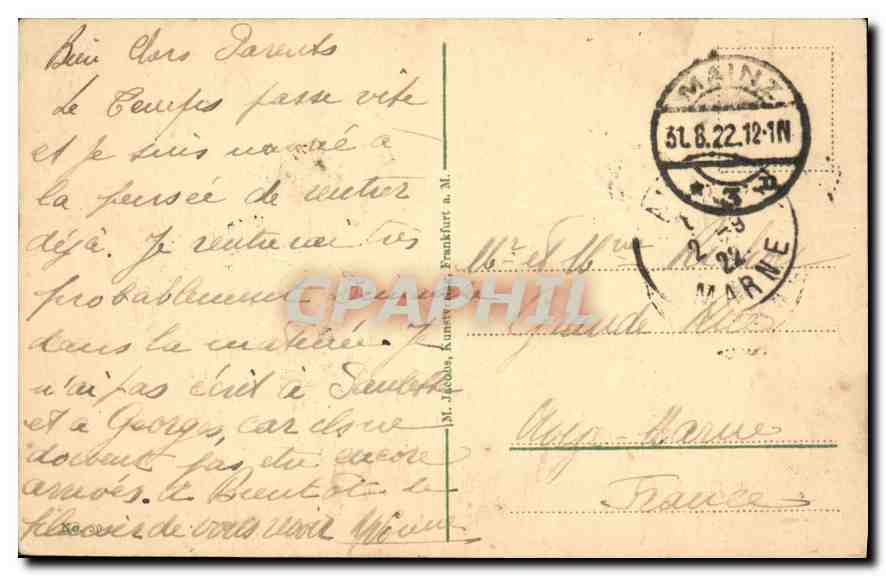 Bien Chers Parents
Le Temps passe vite
et je suis navré à
la pensée de rentrer
déjà. Je rentrerai très
probablement Dimanche
dans la matinée. Je
n'ai pas écrit à
et à Georges, car ils ne
doivent pas être encore
arrivés. A Bientôt le
plaisir de vous revoir Yvonne
No.
M. Jacobs, Kunstverlag, Frankfurt a. M.
CPAPHIL
MAINZ
31.8.22.12-1N
* 3
2 -9
22
MARNE
Mr et Mme
Grande Rue
Ay-Marne
France